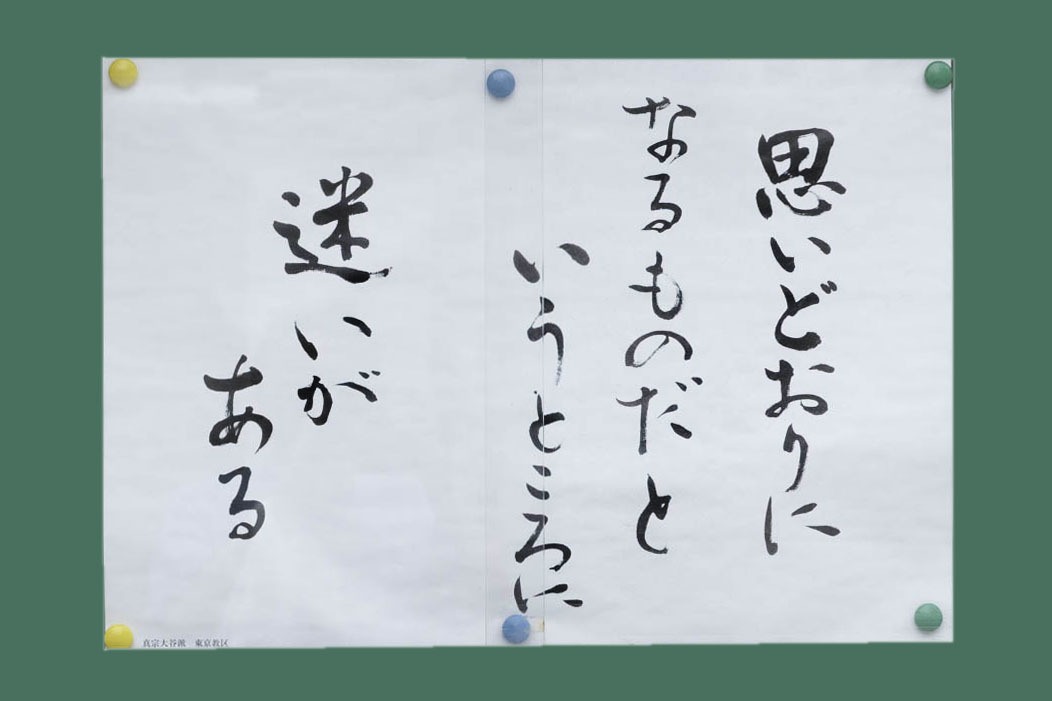 思いどおりに
なるものだと
いうところに
迷いが
ある
真宗大谷派 東京教区